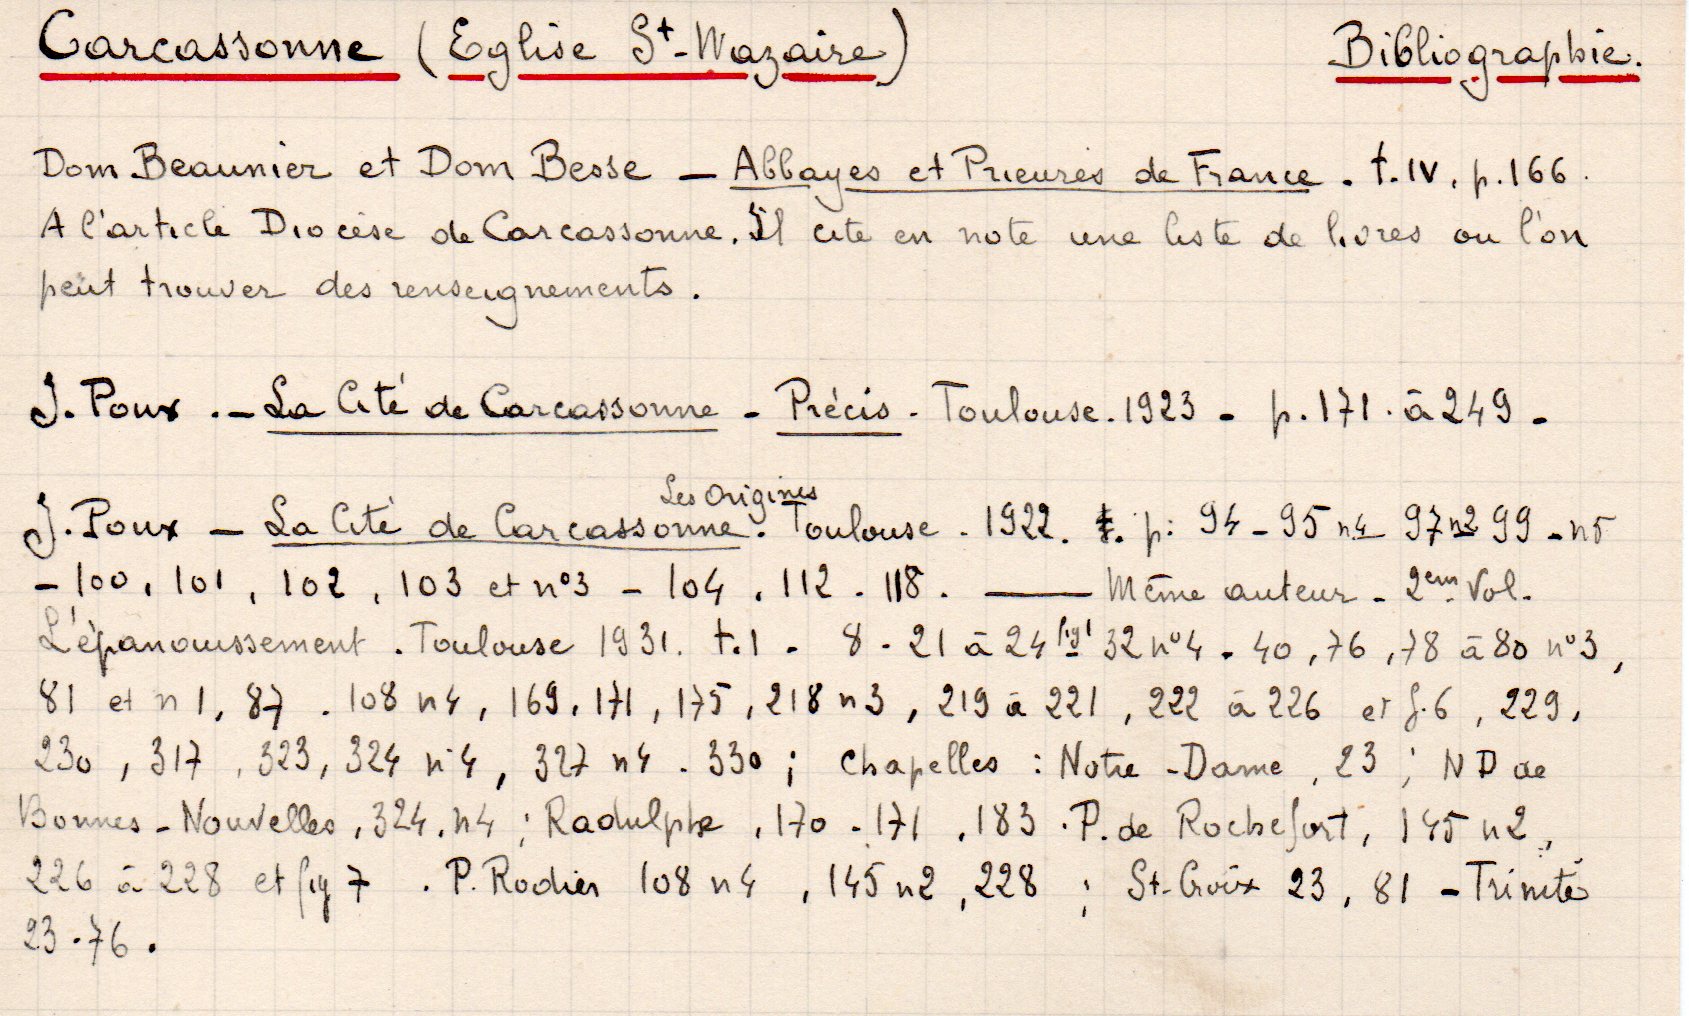 Carcassonne (Eglise St-Nazaire) Bibliographie.
Dom Beaunier et Dom Besse – Abbayes et Prieurés de France. t. IV, p. 166.
A l'article Diocèse de Carcassonne. Il cite en note une liste de livres ou l'on
peut trouver des renseignements.
J. Poux .– La Cité de Carcassonne – Précis – Toulouse. 1923 – p. 171 . à 249 –
Les Origines
J. Poux – La Cité de Carcassonne. Toulouse – 1922. t. p: 94 – 95 n4 97 n2 99 – n5
– 100, 101, 102, 103 et n°3 – 104, 112 . 118. —— Même auteur – 2em Vol.
L'épanouissement. Toulouse 1931. t. 1 – 8 – 21 à 24 fig 1 32 n°4 – 40, 76, 78 à 80 n°3,
81 et n 1, 87 . 108 n4, 169, 171, 175, 218 n3, 219 à 221, 222 à 226 et f. 6, 229,
230, 317, 323, 324 n4, 327 n4 . 330 ; chapelles : Notre-Dame, 23 ; N D de
Bonnes-Nouvelles, 324, n4 ; Radulphe, 170 – 171, 183 . P. de Rochefort, 145 n2,
226 à 228 et fig 7 . P. Rodier 108 n4, 145 n2, 228 ; St-Croix 23, 81 – Trinité
23 . 76 .